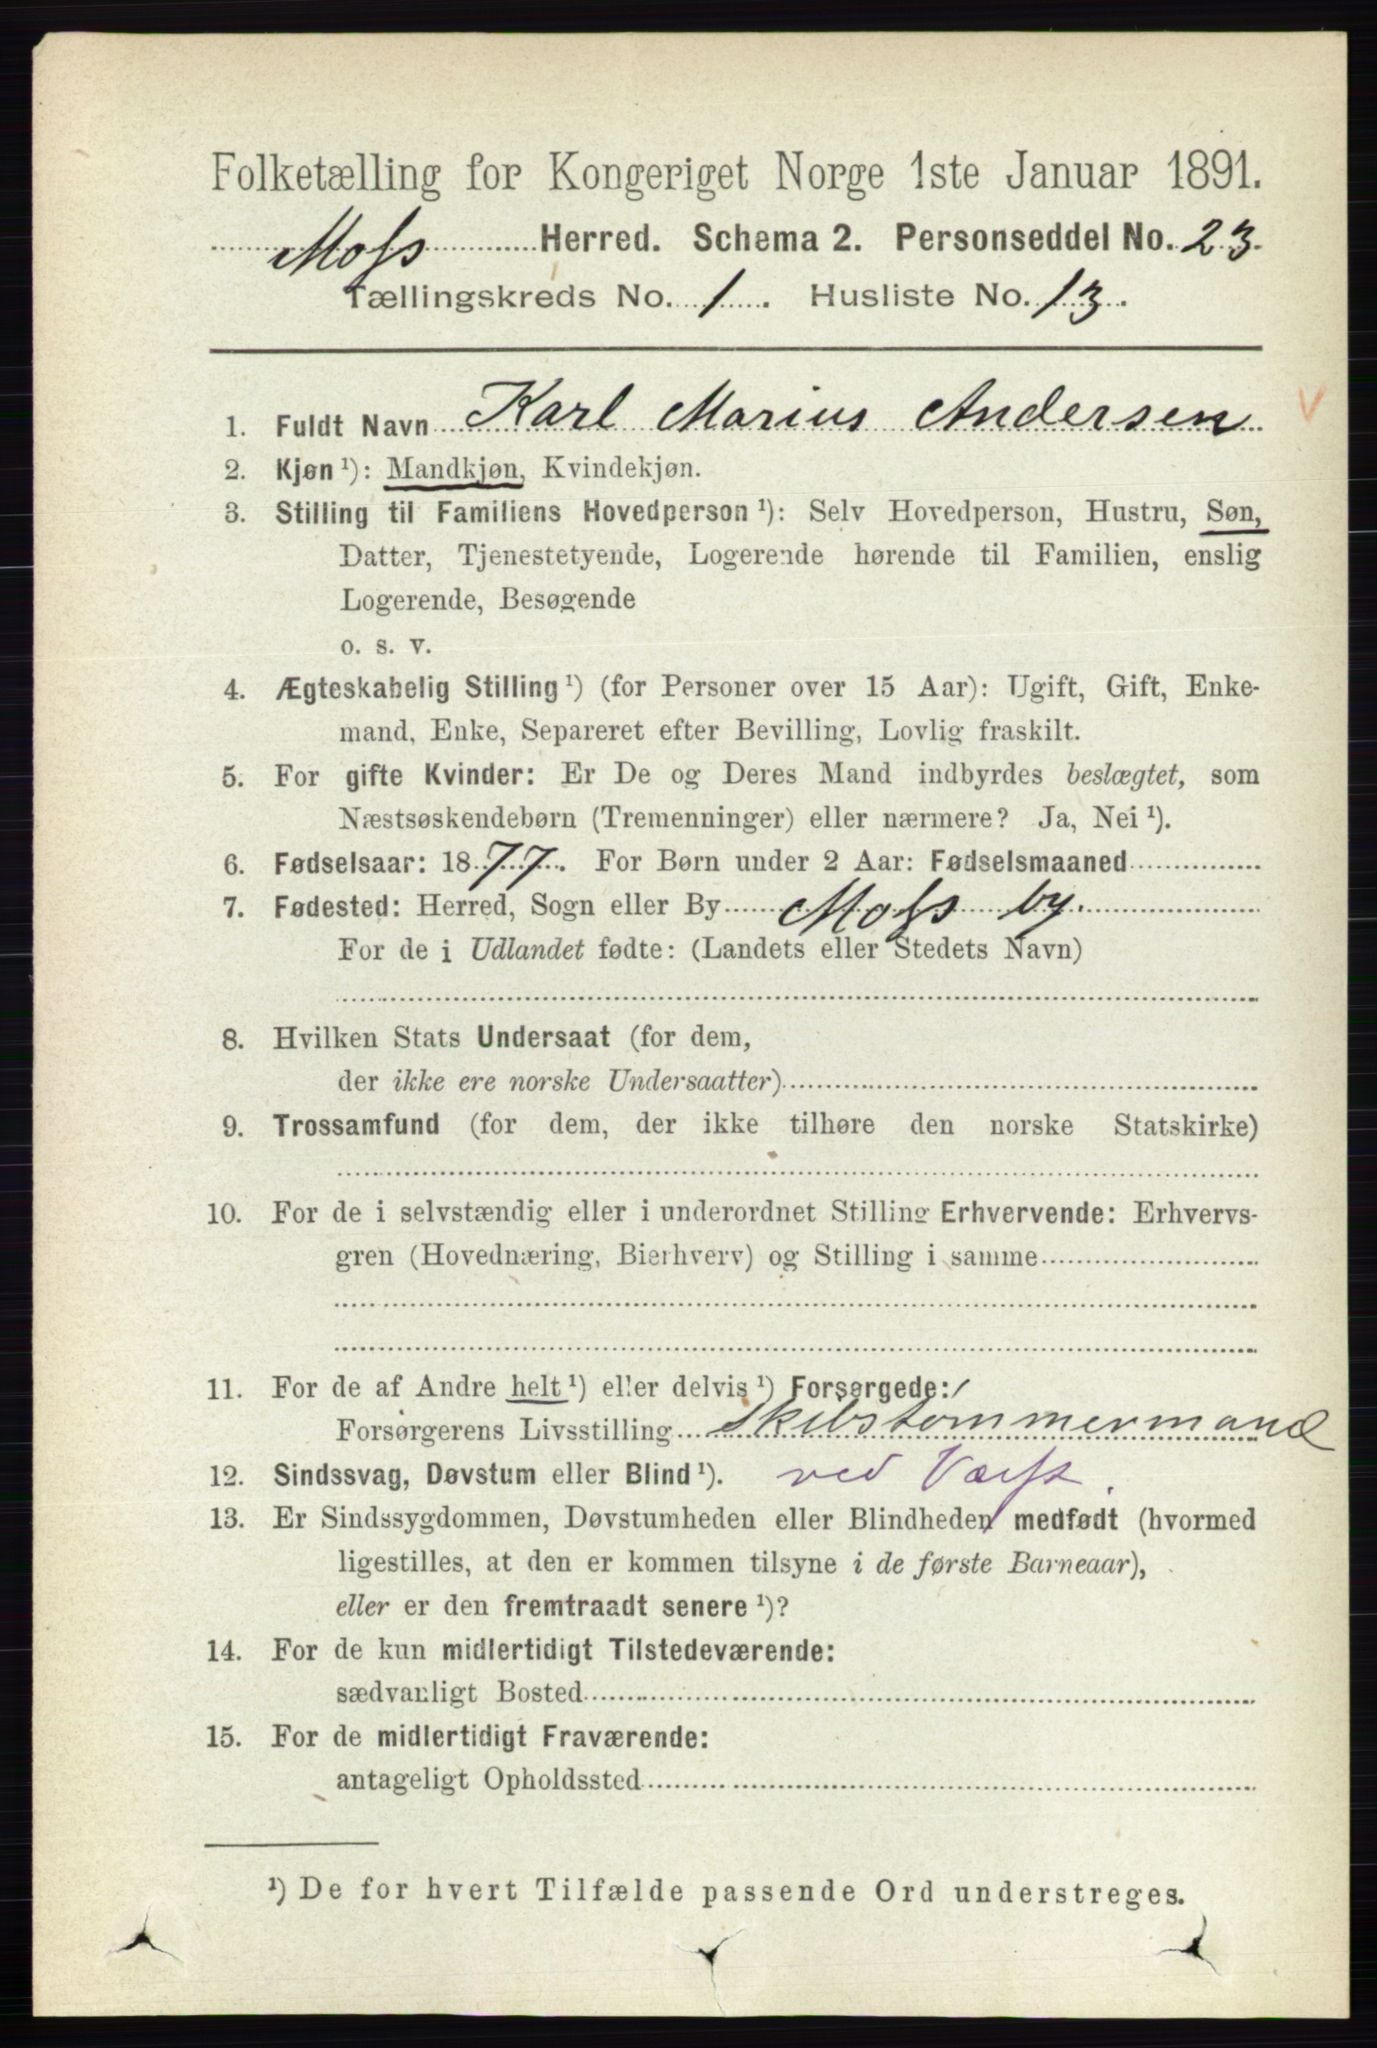 Folketælling for Kongeriget Norge 1ste Januar 1891.
Moss Herred. Schema 2. Personseddel No. 23.
Tællingskreds No. 1. Husliste No. 13.
1. Fuldt Navn Karl Marius Andersen
2. Kjøn ¹): Mandkjøn, Kvindekjøn.
3. Stilling til Familiens Hovedperson ¹): Selv Hovedperson, Hustru, Søn,
Datter, Tjenestetyende, Logerende hørende til Familien, enslig
Logerende, Besøgende
o. s. v.
4. Ægteskabelig Stilling ¹) (for Personer over 15 Aar): Ugift, Gift, Enke-
mand, Enke, Separeret efter Bevilling, Lovlig fraskilt.
5. For gifte Kvinder: Er De og Deres Mand indbyrdes beslægtet, som
Næstsøskendebørn (Tremenninger) eller nærmere? Ja, Nei ¹).
6. Fødselsaar: 1877. For Børn under 2 Aar: Fødselsmaaned
7. Fødested: Herred, Sogn eller By Moss by.
For de i Udlandet fødte: (Landets eller Stedets Navn)
8. Hvilken Stats Undersaat (for dem,
der ikke ere norske Undersaatter)
9. Trossamfund (for dem, der ikke tilhøre den norske Statskirke)
10. For de i selvstændig eller i underordnet Stilling Erhvervende: Erhvervs-
gren (Hovednæring, Bierhverv) og Stilling i samme
11. For de af Andre helt ¹) eller delvis ¹) Forsørgede:
Forsørgerens Livsstilling Skibstømmermand
12. Sindssvag, Døvstum eller Blind ¹). ved Værft.
13. Er Sindssygdommen, Døvstumheden eller Blindheden medfødt (hvormed
ligestilles, at den er kommen tilsyne i de første Barneaar),
eller er den fremtraadt senere ¹)?
14. For de kun midlertidigt Tilstedeværende:
sædvanligt Bosted
15. For de midlertidigt Fraværende:
antageligt Opholdssted
¹) De for hvert Tilfælde passende Ord understreges.